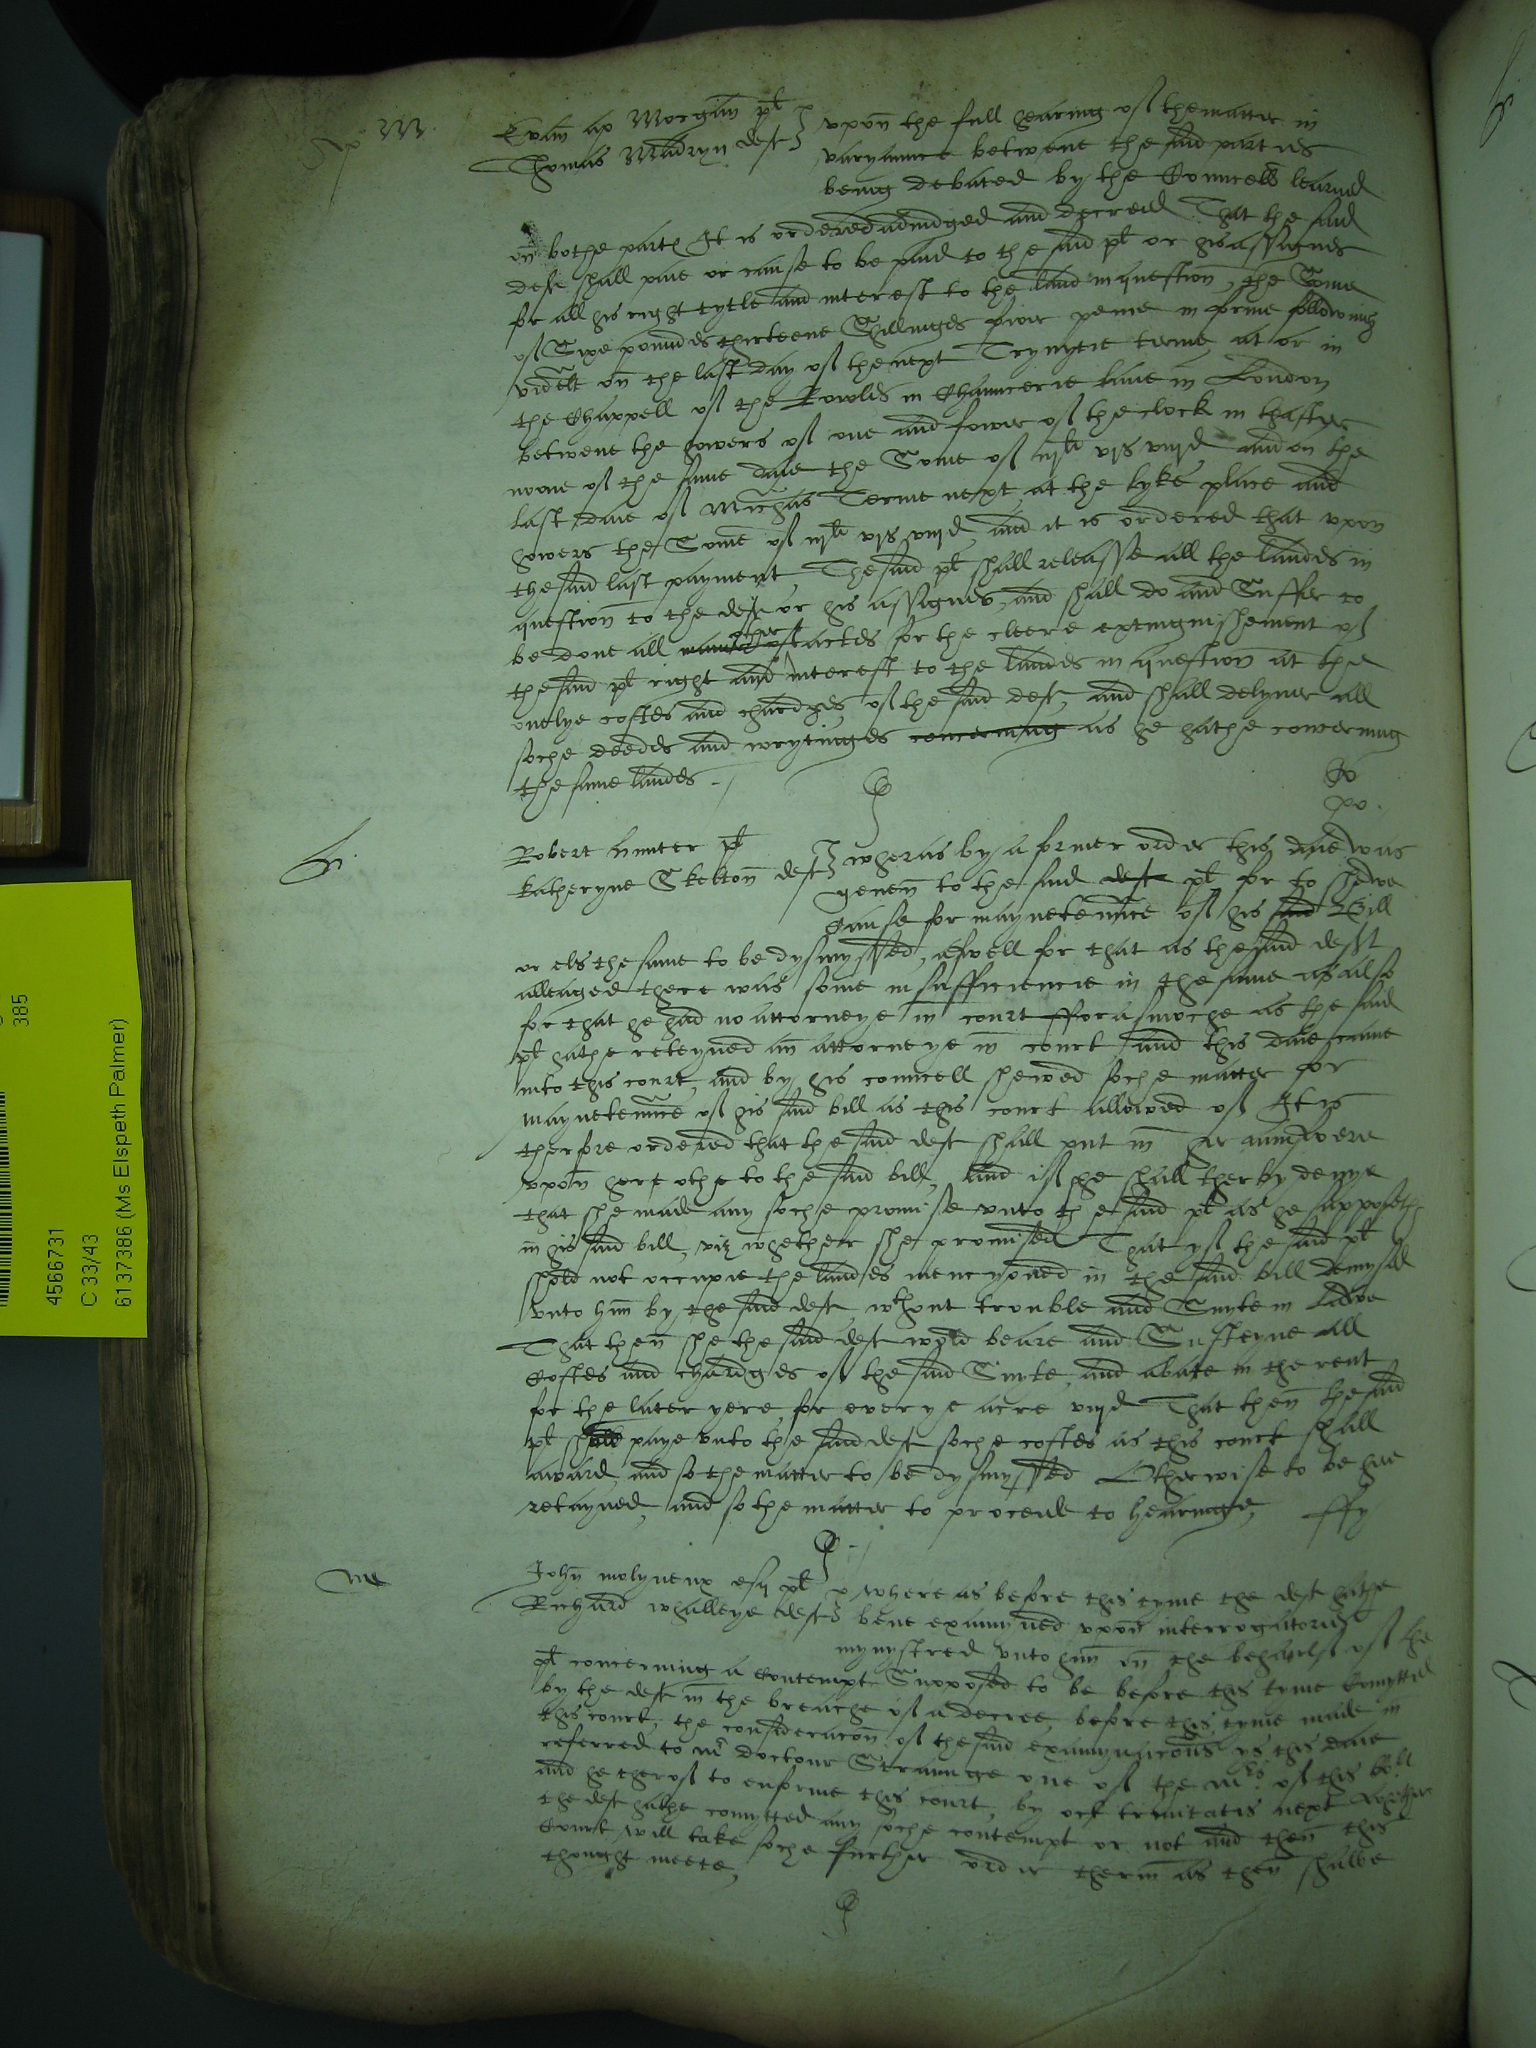 M
Evan ap Morgan pl
Thomas Madryn deft
vpon the full hearing of the matter in
varyaunce betwene the said parties
being debated by the Councell learned
on bothe parts It is ordered adiudged and decreed That the said
deft shall paie or cause to be paid to the said pl or his assignes
for all his right tytle and interest to the land in question, the Some
of Sixe poundes thirteene Shillinges fower pence in forme following
vidzlt on the last day of the next Trynytie terme at or in
the Chappell of the Rowlls in Chauncerie lane in London
betwene the howers of one and fower of the clock in thafter
none of the same daie the Some of iijli vjs viijd and on the
last daie of Michas Terme next at the lyke place and
howers the Some of iijli vjs viijd, and it is ordered that vpon
the said last payment, The said pl shall releasse all the landes in
question to the deft or his assignes, and shall do and Suffer to
be done all other actes for the cleere extinguishement of
the said pl right and interest to the landes in question at the
onelye costes and chardges of the said deft, and shall delyuer all
soche deedes and wrytinges concerning as he hathe concerning
the same landes
po
Robert Hunter pl
Katheryne Skelton deft
wheras by a former order this daie was
geuen to the said deft pl for to shewe
cause for mayntenaunce of his said Bill
or els the same to be dysmyssed, aswell for that as the said deft
alleaged there was some insufficiencie in the same as also
for that he had no attorneye in court fforasmoche as the said
pl hathe reteyned an attorneye in court and this daie came
into this court, and by his councell shewed soche matter for
mayntenaunce of his said bill as this court allowed of It is
therfore ordered that the said deft shall put in her aunswere
vpon her othe to the said bill, and if she shall therby denye
that she made any soche promise vnto the said pl as he supposeth
in his said bill, viz whether she promised That yf the said pl
shold not occupie the landes mencyoned in the said bill demysed
vnto him by the said deft wthout trouble and Suyte in Lawe
That then she the said deft wold beare and Susteyne all
Costes and chardges of the said Suyte, and abate in the rent
for the later yere, for euerye acre viijd That then the said
pl shold paye vnto the said deft soche costes as this court shall
award, and so the matter to be dysmyssed Otherwise to be here
retayned, and so the matter to procede to hearinge, ffy
John molyneux esq pl
Richard whalleye deft
where as before this tyme the deft hathe
bene examyned vpon interrogatories
mynystred vnto him on the behaulf of the
pl concerning a Contempt Supposed to be before this tyme Comytted
by the deft in the breache of a decree, before this tyme made in
this court, the consideracon of the said examynacons ys this daie
referred to Mr doctour Straunge one of the Mrs of this
and he therof to enforme this court, by oct trinitatis next whether
the deft hathe comytted any soche contempt or not and then this
Court will take soche further order therin as then shalbe
thought meete,
385
4566731
C 33/43
6137386 (Ms Elspeth Palmer)